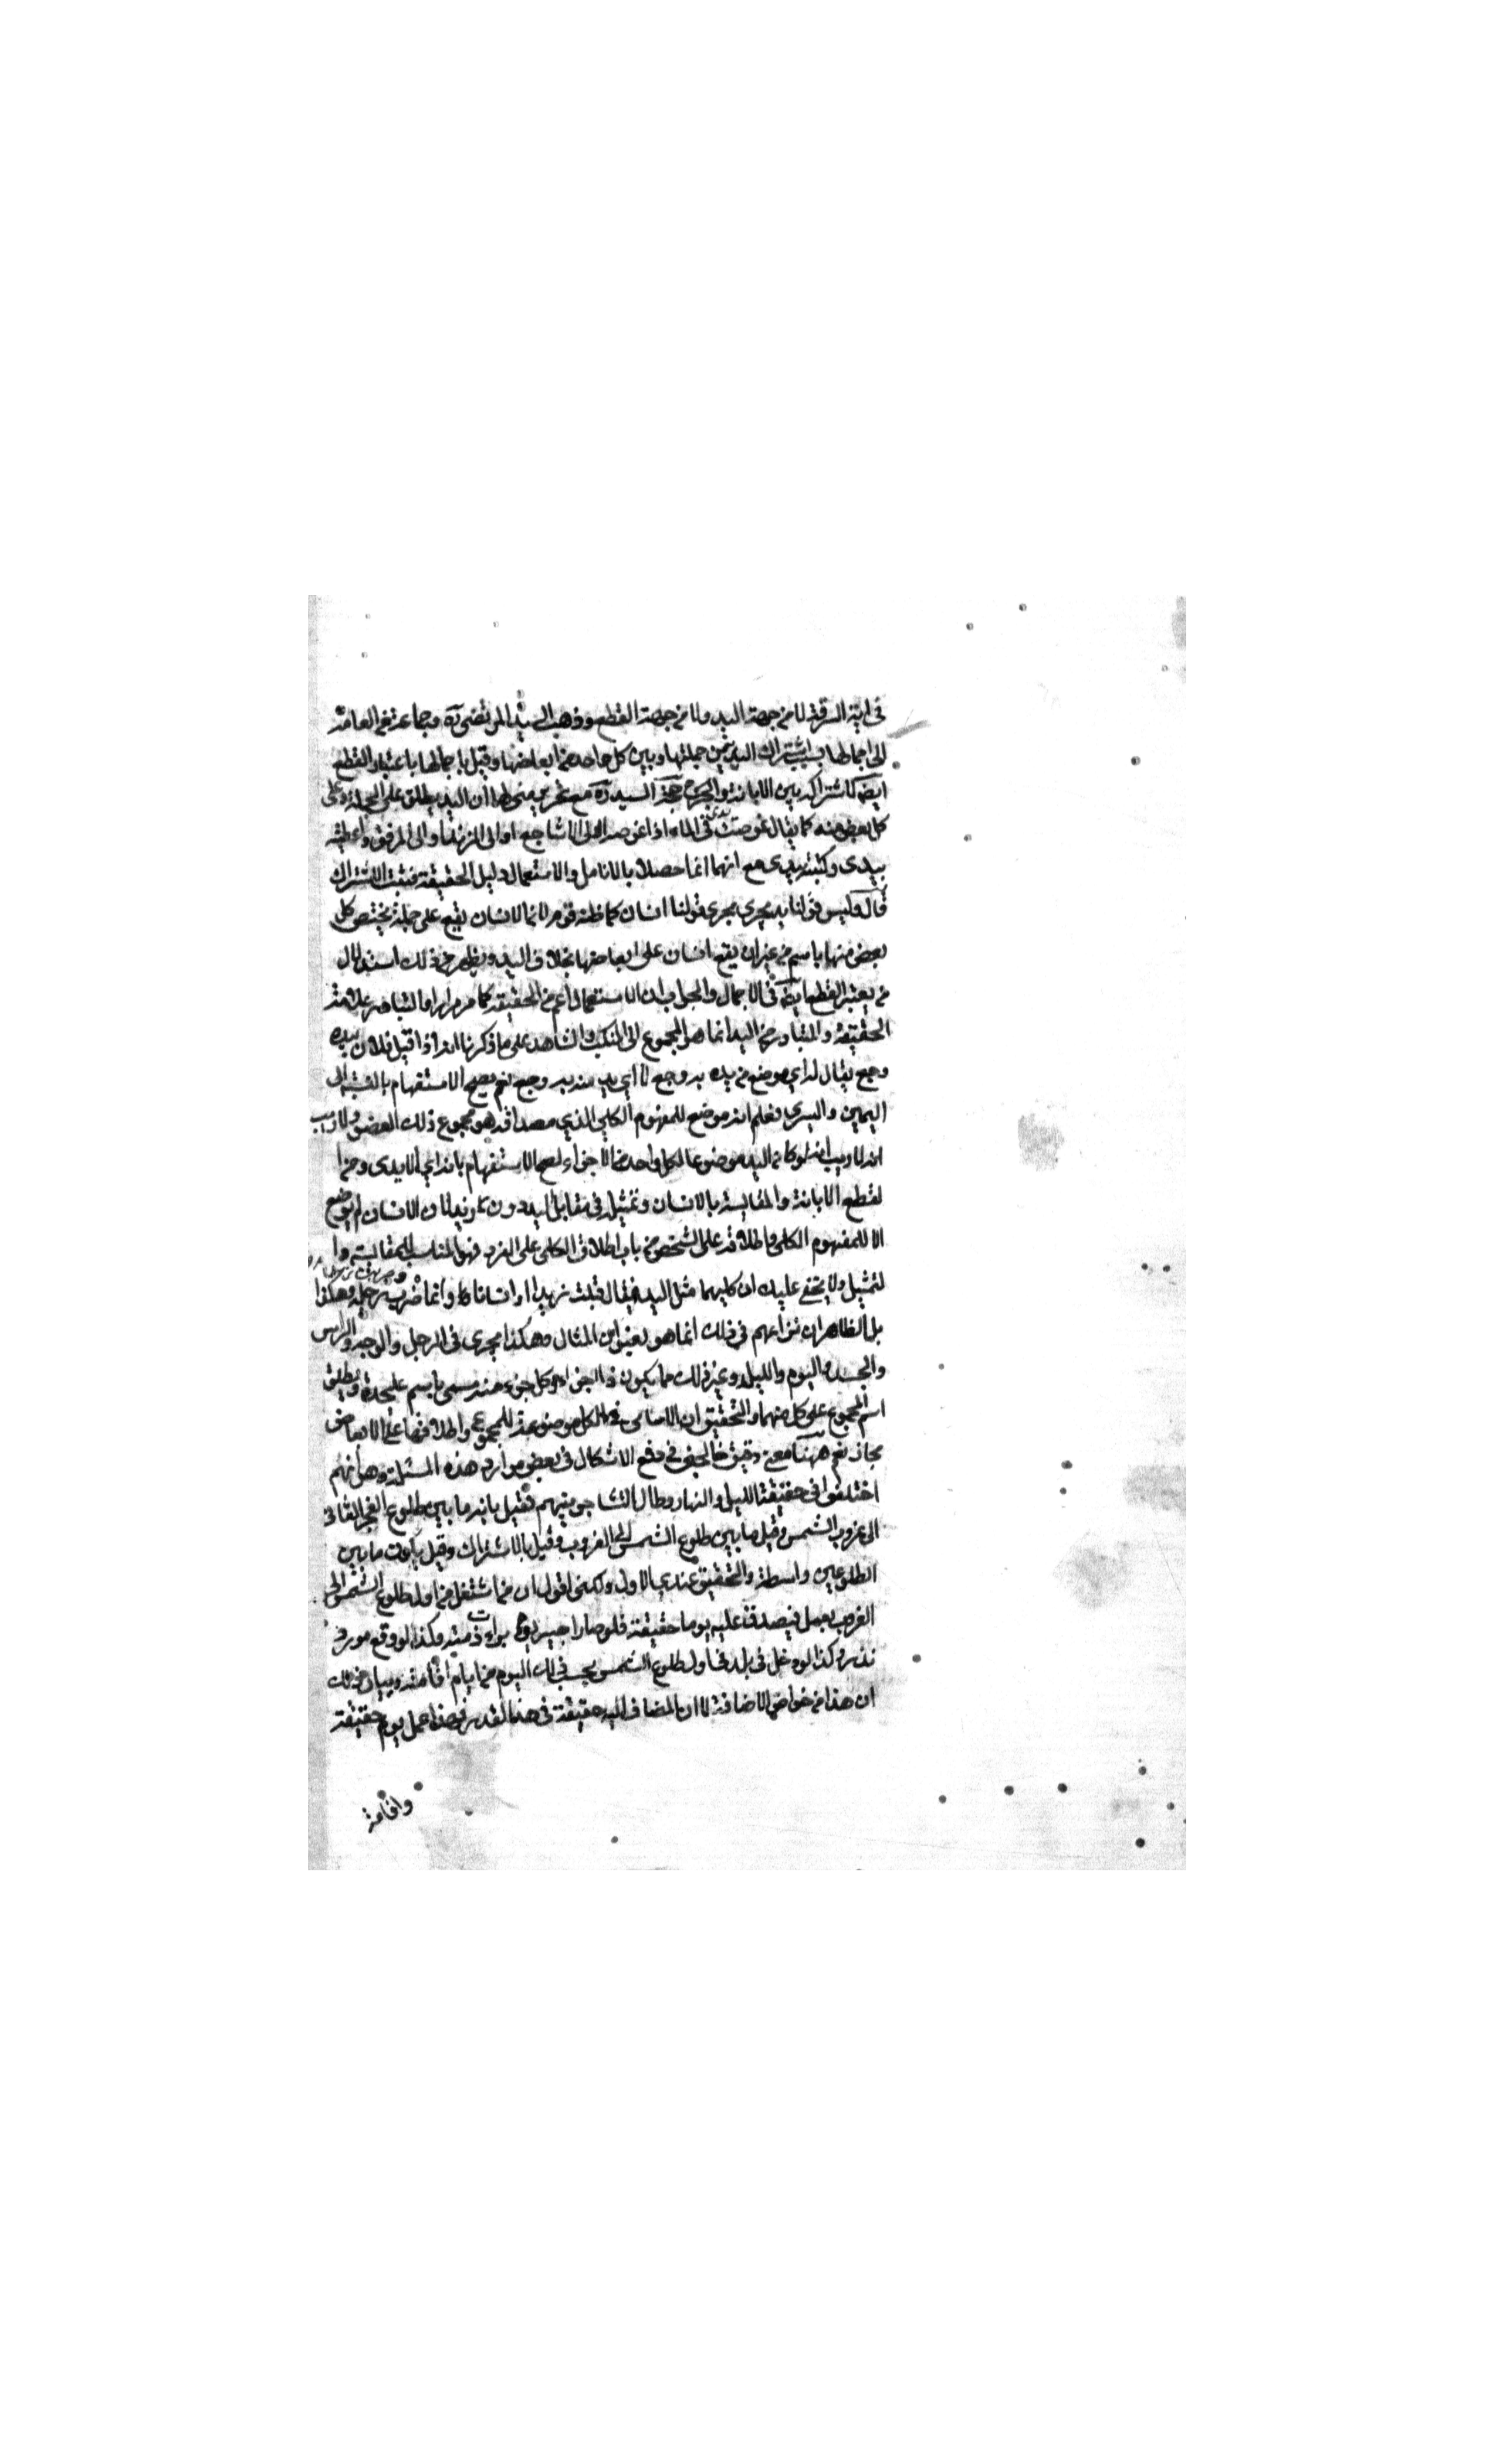 في اية السرقة لا من جهة اليد ولا من جهة القطع وذهب السيد المرتضى ره وجماعة من العامة
الى اجمالها باشتراك اليد بين جملتها وبين كل واحد من ابعاضها وقيل باجمالها باعتبار القطع
ايضا لاشتراكه بين الابانة والجرح حجة السيد ره مع تحرير مني لها ان اليد يطلق على الجملة وعلى
كل بعض منه كما يقال غوصت يدي في الماء اذا غوصه الى الاشاجع او الى الزند او الى المرفق واعطيته
بيدى وكتبته بيدى مع انهما انما حصلا بالانامل والاستعمال دليل الحقيقة فثبت الاشتراك
قال وليس قولنا يد يجرى مجرى قولنا انسان كما ظنه قوم لان الانسان يقع على جملة يختص كل
بعض منها باسم من غير ان يقع انسان على ابعاضها بخلاف اليد ويظهر من ذلك استدلال
من يعتبر القطع ايضا في الاجمال والجواب ان الاستعمال اعم من الحقيقة كما مر مرارا والتبادر علامة
الحقيقة والمتبادر من اليد انما هو المجموع الى المنكب والشاهد على ما ذكرنا انه اذا قيل فلان بيده
وجع يقال له اي موضع من يده به وجع لا اي يد منه به وجع نعم يصح الاستفهام بالنسبة الى
اليمين واليسرى فعلم انه موضع للمفهوم الكلي الذي مصداقه هو مجموع ذلك العضو ولا ريب
انه لا ريب انه لو كان اليد موضوعا لكل واحد من الاجزاء لصح الاستفهام بانه اي الايدى ومن
لقطع الابانة والمقايسة بالانسان وتمثيله في مقابل اليد دون زيد لان الانسان لم يوضع
الا للمفهوم الكلى واطلاقه على الشخص من باب اطلاق الكلى على الفرد فهو المناسب للمقايسة وا
لتمثيل ولا يخفى عليك ان كليهما مثل اليد فيقال قبلت زيدا او انسانا وانما ضرب رجله وهكذا
بل الظاهر ان نزاعهم في ذلك انما هو لعنوان المثال وهكذا يجرى في الرجل والوجه والراس
والجسد واليوم والليل وغير ذلك مما يكون ذا اجزاء وكل جزء منه مسمى باسم عليحدة ويطلق
اسم المجموع على كل منهما والتحقيق ان الاسامى في الكل موضوعة للمجموع واطلاقها على الابعاض
مجاز نعم ههنا معنى دقيق في دفع الاشكال في بعض موارد هذه المسئلة وهى انهم
اختلفوا في حقيقة الليل والنهار وطال التشاجر بينهم فقيل بانه ما بين طلوع الفجر الثانى
الى غروب الشمس وقيل ما بين طلوع الشمس الى الغروب وقيل بالاشتراك وقيل بكون ما بين
الطلوعين واسطة والتحقيق عندي الاول ولكنى اقول ان من اشتغل من اول طلوع الشمس الى
الغروب بعمل فيصدق عليه يوما حقيقة فلو صار اجير يوم برات ذمته وكذا لو وقع مورد
نذر وكذا لو دخل فى بلد فى اول طلوع الشمس يحسب ذلك اليوم من ايام اقامته وبيان ذلك
ان هذا من خواص الاضافة لا ان المضاف اليه حقيقة فى هذا القدر فهذا عمل يوم حقيقة
واقامة